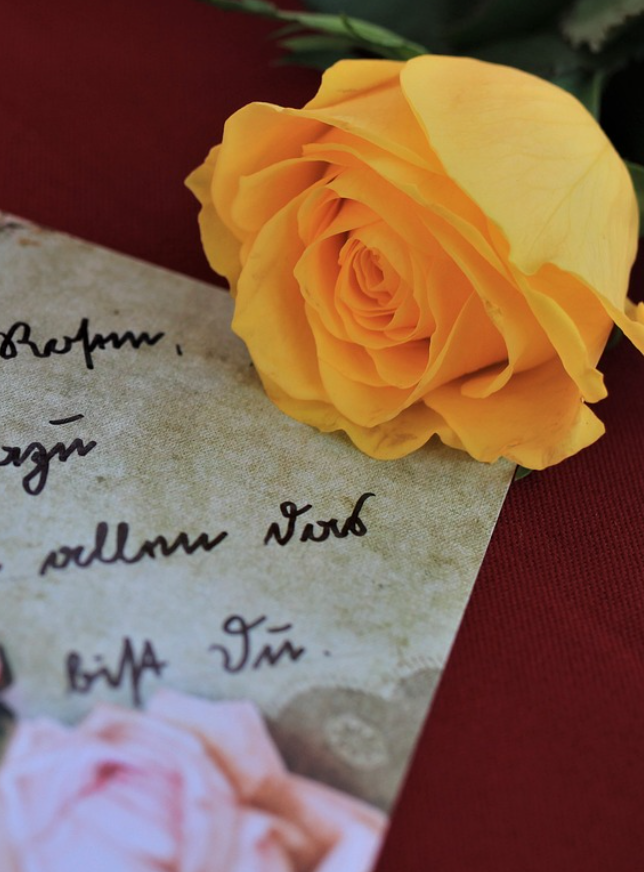 Rosen,
rzu
allen Das
bist Du.